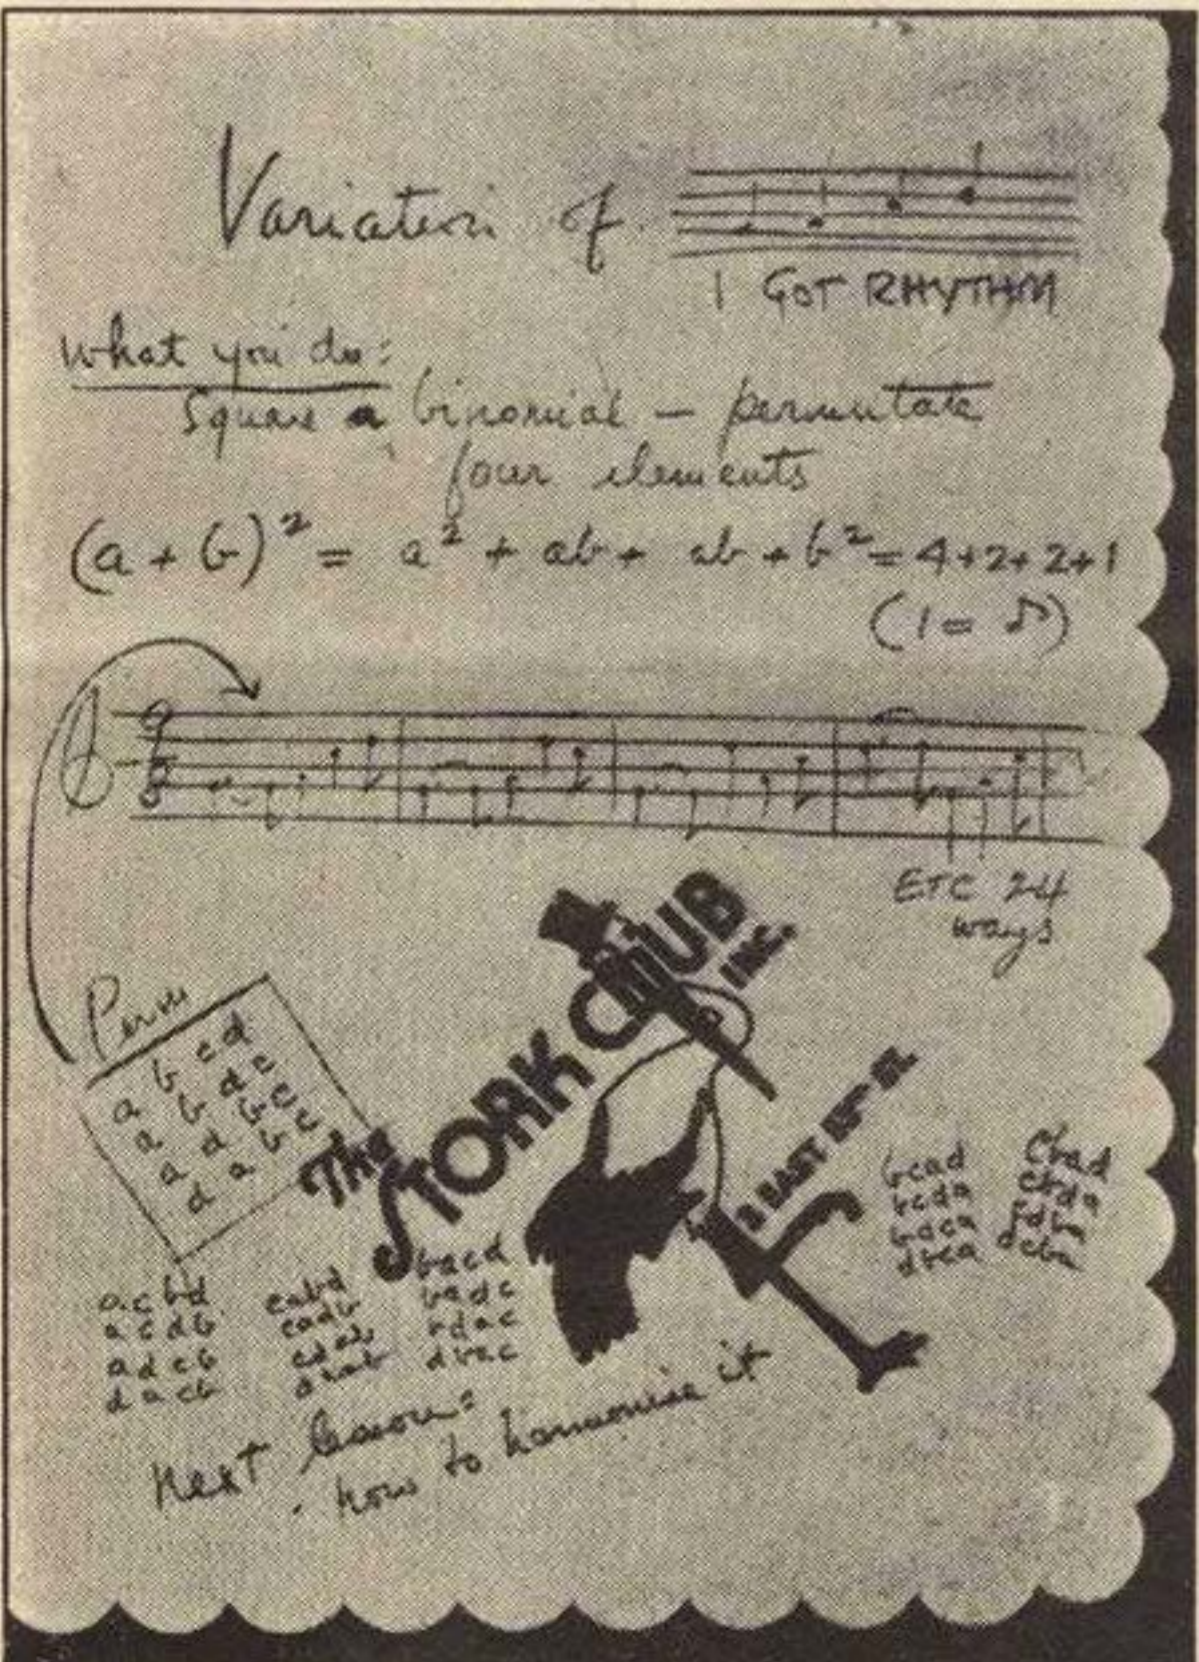 Variation of
I GOT RHYTHM
What you do:
Square a binomial — permutate
four elements
(a + b)² = a² + ab + ab + b² = 4+2+2+1
(1 = ♪)
9
8
ETC 24
ways
Perm
a b c d
a b d c
a d b c
d a b c
The STORK CLUB INC.
3 EAST 53RD ST.
bcad
bcda
bdca
dbca
cbad
cbda
cdba
dcba
acbd
acdb
adcb
dacb
cabd
cadb
cdab
dcab
bacd
badc
bdac
dbac
next lesson:
how to harmonize it